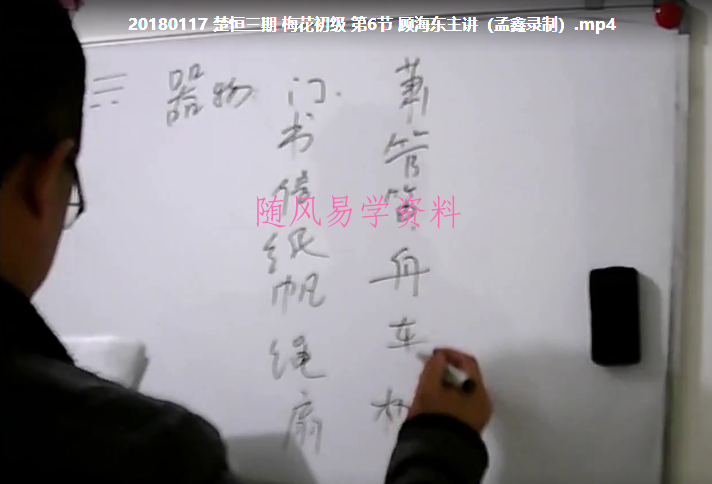 20180117 楚恒三期 梅花初级 第6节 顾海东主讲（孟鑫录制）.mp4
器物 门.
书
纸
帆
绳
扇
萧
管
舟
车
随风易学资料